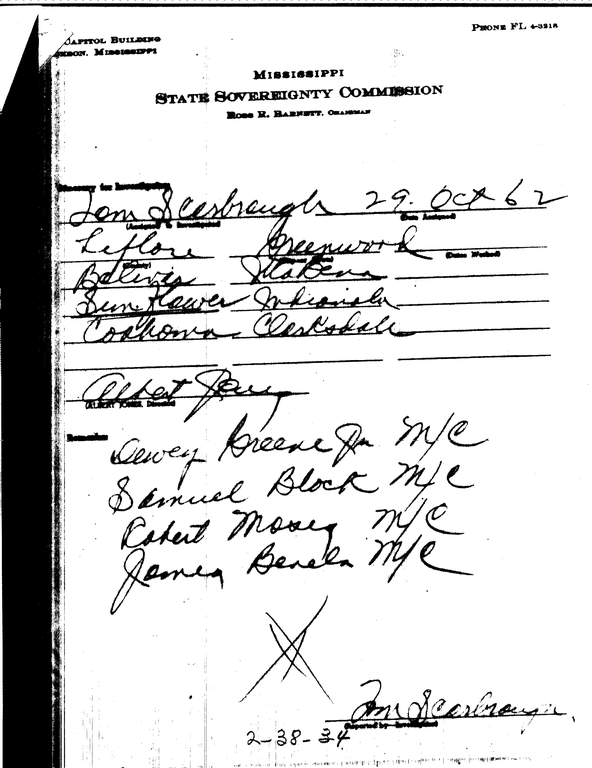 PHONE FL 4-3218
CAPITOL BUILDING
MISSISSIPPI
MISSISSIPPI
STATE SOVEREIGNTY COMMISSION
ROSS R. BARNETT, CHAIRMAN
Itinerary for Investigation
Tom Scarbrough 29. Oct 62
(Assigned to Investigator) (Date Assigned)
Leflore Greenwood
(County) (Dates Worked)
Bolivar Itta Bena
Sunflower Indianola
Coahoma Clarksdale
Albert Jones
(ALBERT JONES, Director)
Remarks
Dewey Greene Jr M/C
Samuel Block M/C
Robert Moses M/C
James M/C
Tom Scarbrough
(Reported by Investigator)
2-38-34